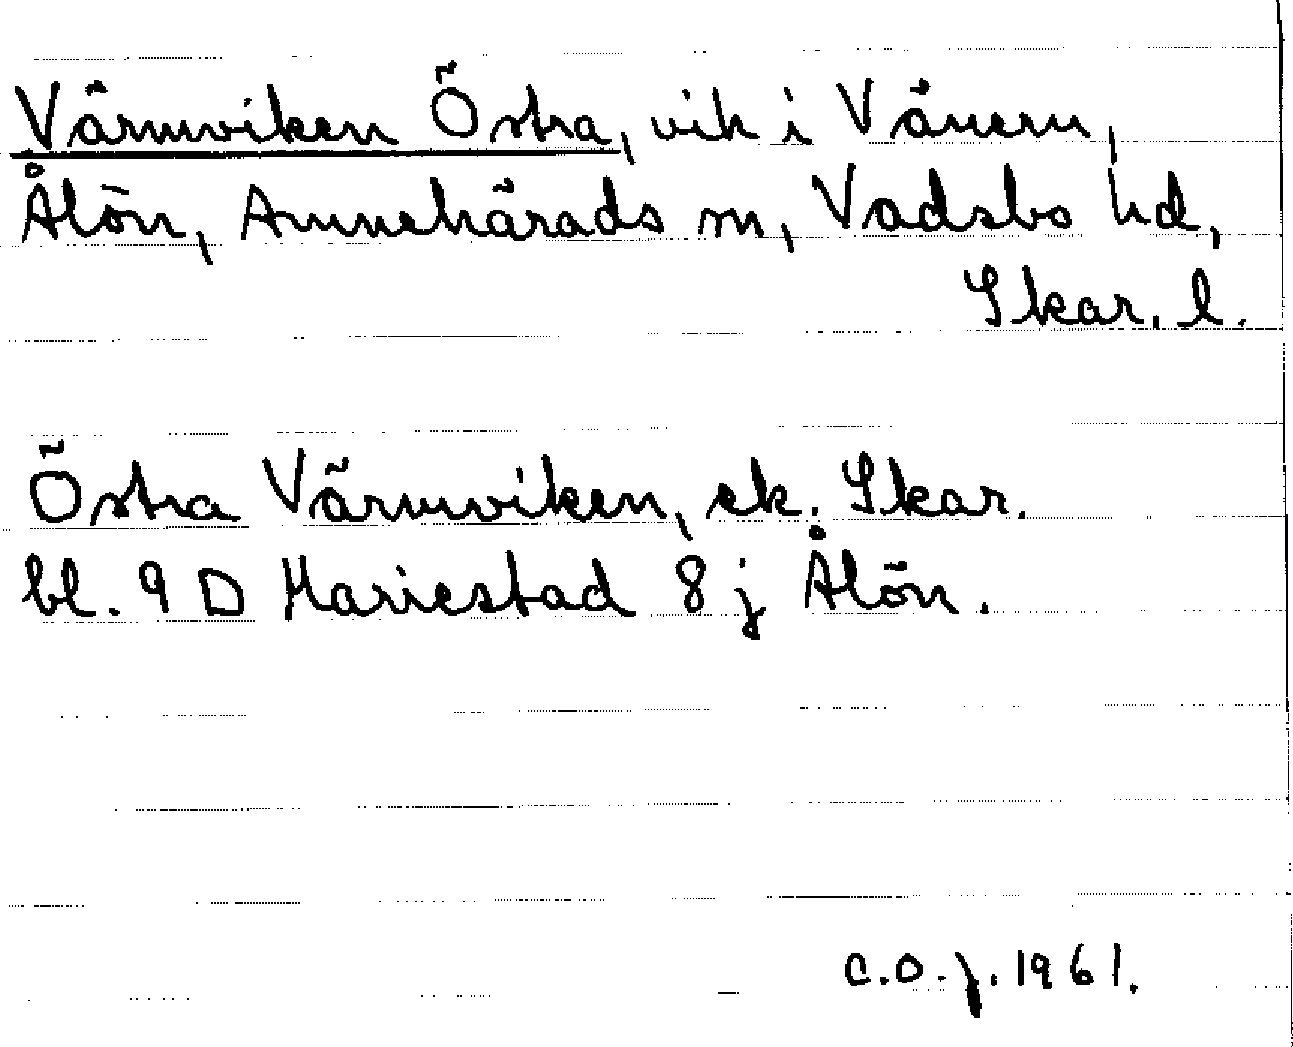 Värmviken Östra, vik i Vänern,
Ålön, Amnehärads sn, Vadsbo hd,
Skar. l.
Östra Värmviken, ek. Skar.
bl. 9 D Mariestad 8 j Ålön.
C.O.J. 1961.